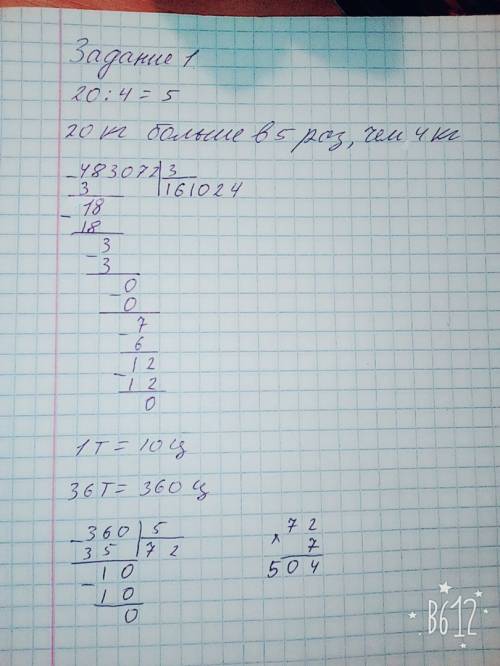 Задание 1
20:4=5
20 кг больше в 5 раз, чем 4 кг
483072 3
3 161024
18
18
3
3
0
0
7
6
12
12
0
1 т = 10 ц
36 т = 360 ц
360 5
35 72
10
10
0
72
× 7
504
B612